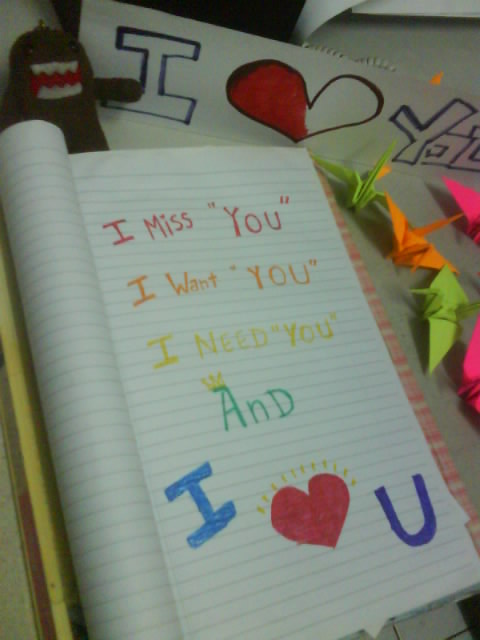 I ❤ You
I Miss "YOU"
I Want "YOU"
I NEED "YOU"
AnD
I ❤ U